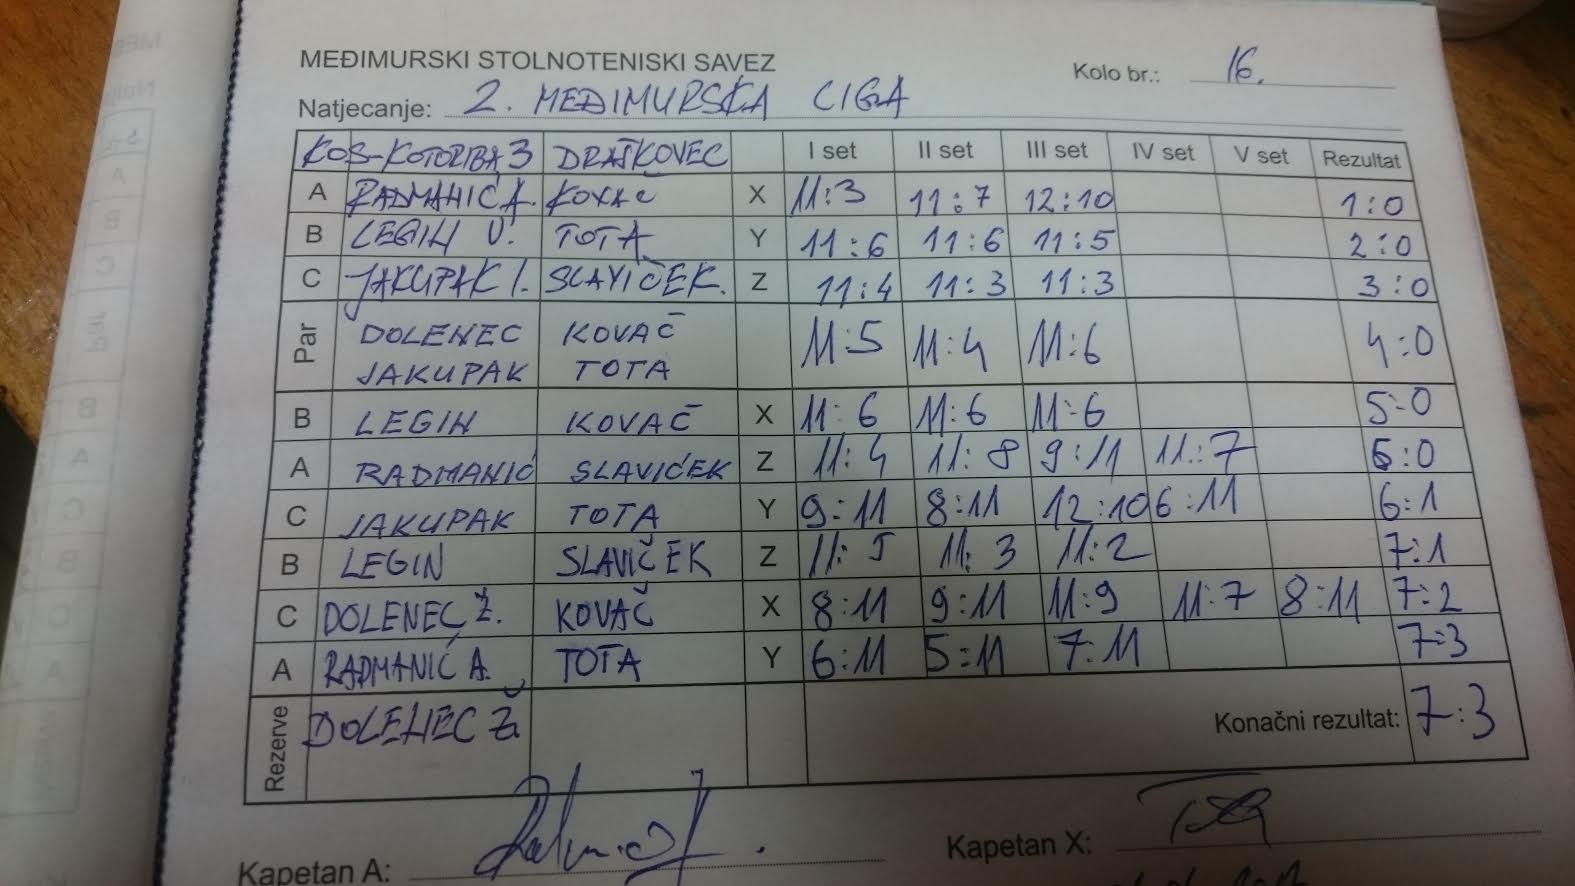 MEĐIMURSKI STOLNOTENISKI SAVEZ
Kolo br.: 16.
Natjecanje: 2. MEĐIMURSKA LIGA
KOS-KOTORIBA 3 DRAŠKOVEC I set II set III set IV set V set Rezultat
A RADMANIĆ A. KOVAČ X 11:3 11:7 12:10 1:0
B LEGIN V. TOTA Y 11:6 11:6 11:5 2:0
C JAKUPAK I. SLAVIČEK. Z 11:4 11:3 11:3 3:0
Par DOLENEC KOVAČ 11:5 11:4 11:6 4:0
JAKUPAK TOTA
B LEGIN KOVAČ X 11:6 11:6 11:6 5:0
A RADMANIĆ SLAVIČEK Z 11:4 11:8 9:11 11:7 6:0
C JAKUPAK TOTA Y 9:11 8:11 12:10 6:11 6:1
B LEGIN SLAVIČEK Z 11:5 11:3 11:2 7:1
C DOLENEC Ž. KOVAČ X 8:11 9:11 11:9 11:7 8:11 7:2
A RADMANIĆ A. TOTA Y 6:11 5:11 7:11 7:3
Rezerve DOLENEC Ž. Konačni rezultat: 7:3
Kapetan A:
Kapetan X: